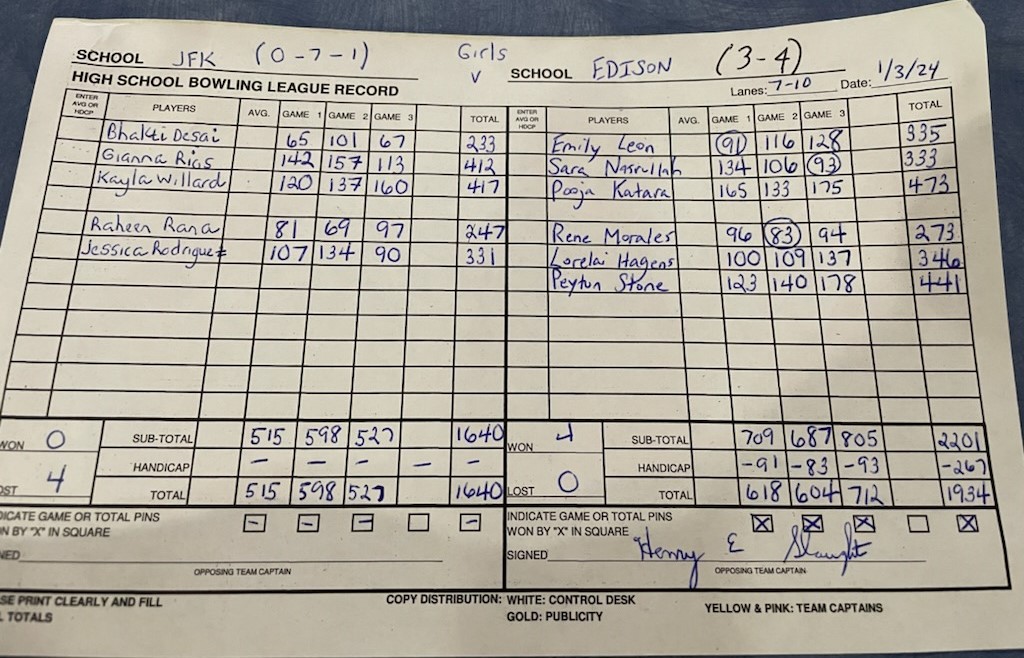 SCHOOL JFK (0-7-1) Girls v SCHOOL EDISON (3-4)
HIGH SCHOOL BOWLING LEAGUE RECORD Lanes: 7-10 Date: 1/3/24
ENTER AVG OR HDCP PLAYERS AVG. GAME 1 GAME 2 GAME 3 TOTAL ENTER AVG OR HDCP PLAYERS AVG. GAME 1 GAME 2 GAME 3 TOTAL
Bhakti Desai 65 101 67 233 Emily Leon 91 116 128 335
Gianna Rios 142 157 113 412 Sara Nasrullah 134 106 93 333
Kayla Willard 120 137 160 417 Pooja Katara 165 133 175 473
Raheen Rana 81 69 97 247 Rene Morales 96 83 94 273
Jessica Rodriguez 107 134 90 331 Lorelai Hagens 100 109 137 346
Peyton Stone 123 140 178 441
WON 0 SUB-TOTAL 515 598 527 1640 WON 4 SUB-TOTAL 709 687 805 2201
HANDICAP - - - - - HANDICAP -91 -83 -93 -267
OST 4 TOTAL 515 598 527 1640 LOST 0 TOTAL 618 604 712 1934
DICATE GAME OR TOTAL PINS - - - - INDICATE GAME OR TOTAL PINS X X X X
N BY "X" IN SQUARE WON BY "X" IN SQUARE
NED SIGNED Henry E
OPPOSING TEAM CAPTAIN OPPOSING TEAM CAPTAIN
SE PRINT CLEARLY AND FILL COPY DISTRIBUTION: WHITE: CONTROL DESK YELLOW & PINK: TEAM CAPTAINS
L TOTALS GOLD: PUBLICITY